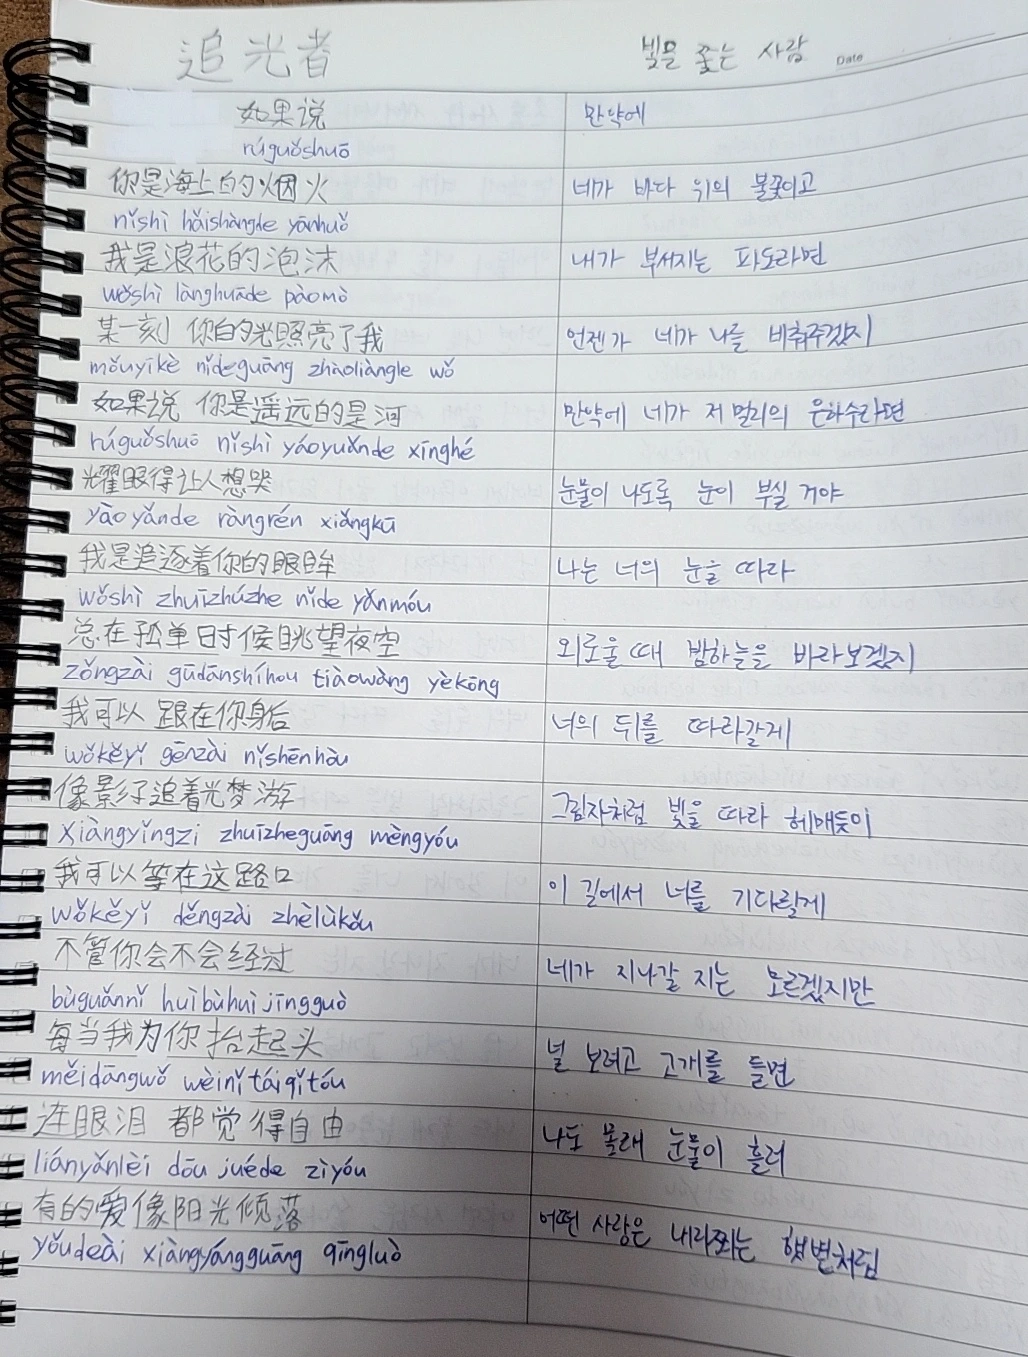 追光者 빛을 쫓는 사람
Date
如果说 만약에
rúguǒshuō
你是海上的烟火 네가 바다 위의 불꽃이고
nǐshì hǎishàngde yānhuǒ
我是浪花的泡沫 내가 부서지는 파도라면
wǒshì lànghuāde pàomò
某一刻 你的光照亮了我 언젠가 네가 나를 비춰주겠지
mǒuyíkè nǐdeguāng zhàoliàngle wǒ
如果说 你是遥远的星河 만약에 네가 저 멀리의 은하수라면
rúguǒshuō nǐshì yáoyuǎnde xīnghé
耀眼得让人想哭 눈물이 나도록 눈이 부실 거야
yàoyǎnde ràngrén xiǎngkū
我是追逐着你的眼眸 나는 너의 눈을 따라
wǒshì zhuīzhúzhe nǐde yǎnmóu
总在孤单时候眺望夜空 외로울 때 밤하늘을 바라보겠지
zǒngzài gūdānshíhou tiàowàng yèkōng
我可以 跟在你身后 너의 뒤를 따라갈게
wǒkěyǐ gēnzài nǐshēnhòu
像影子追着光梦游 그림자처럼 빛을 따라 헤매듯이
xiàngyǐngzi zhuīzheguāng mèngyóu
我可以等在这路口 이 길에서 너를 기다릴게
wǒkěyǐ děngzài zhèlùkǒu
不管你会不会经过 네가 지나갈 지는 모르겠지만
bùguǎnnǐ huìbùhuì jīngguò
每当我为你抬起头 널 보려고 고개를 들면
měidāngwǒ wèinǐ táiqǐtóu
连眼泪 都觉得自由 나도 몰래 눈물이 흘러
liányǎnlèi dōu juéde zìyóu
有的爱像阳光倾落 어떤 사랑은 내리쬐는 햇볕처럼
yǒudeài xiàngyángguāng qīngluò